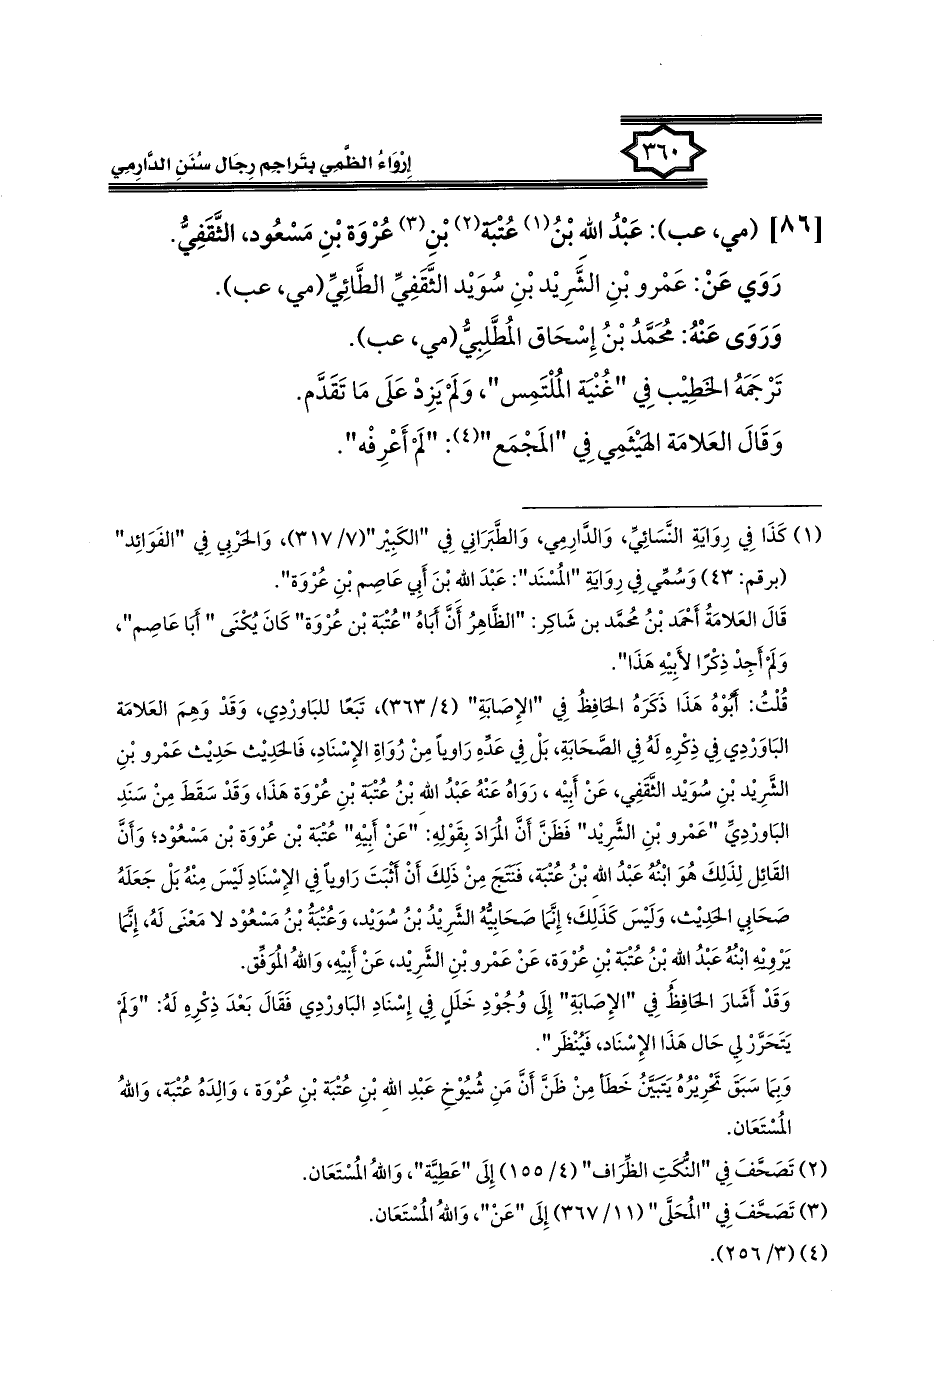 ٣٦٠
إِرْوَاءُ الظَّمِي بِتَراجِمِ رِجَالِ سُنَنِ الدَّارِمِي
[٨٦] (مي، عب): عَبْدُ الله بْنُ(١) عُتْبَة(٢) بْنِ(٣) عُرْوَة بْنِ مَسْعُود، الثَّقَفِيُّ.
رَوَى عَنْ: عَمْرو بْنِ الشَّرِيْد بْنِ سُوَيْد الثَّقَفِيِّ الطَّائِيِّ (مي، عب).
وَرَوَى عَنْهُ: مُحَمَّدُ بْنُ إِسْحَاق المُطَّلِبِيُّ (مي، عب).
تَرْجَمَهُ الخَطِيْب فِي "غُنْيَة المُلْتَمِس"، وَلَمْ يَزِدْ عَلَى مَا تَقَدَّم.
وَقَالَ العَلامَة الهَيْثَمِي فِي "المَجْمَع"(٤): "لَمْ أَعْرِفْه".
(١) كَذَا فِي رِوَايَةِ النَّسَائِيِّ، وَالدَّارِمِي، وَالطَّبَرَانِي فِي "الكَبِيْر" (٧/ ٣١٧)، وَالحَرْبِي فِي "الفَوَائِد"
(برقم: ٤٣) وَسُمِّي فِي رِوَايَةِ "المُسْنَد": عَبْدَ الله بْنَ أَبِي عَاصِم بْنِ عُرْوَة".
قَالَ العَلامَةُ أَحْمَد بْنُ مُحَمَّد بن شَاكِر: "الظَّاهِرُ أَنَّ أَبَاهُ "عُتْبَة بْن عُرْوَة" كَانَ يُكْنَى " أَبَا عَاصِم"،
وَلَمْ أَجِدْ ذِكْرًا لأَبِيْهِ هَذَا".
قُلْتُ: أَبُوْهُ هَذَا ذَكَرَهُ الحَافِظُ فِي "الإِصَابَةِ" (٤/ ٣٦٣)، تَبَعًا للبَاوردِي، وَقَدْ وَهِمَ العَلامَة
البَاوَرْدِي فِي ذِكْرِهِ لَهُ فِي الصَّحَابَةِ، بَلْ فِي عَدِّهِ رَاوِياً مِنْ رُوَاةِ الإِسْنَادِ، فَالحَدِيْث حَدِيْث عَمرو بْنِ
الشَّرِيْد بْنِ سُوَيْد الثَّقَفِي، عَنْ أَبِيْه ، رَوَاهُ عَنْهُ عَبْدُ الله بْنُ عُتْبَة بْنِ عُرْوَة هَذَا، وَقَدْ سَقَطَ مِنْ سَنَدِ
البَاوَرْدِيِّ "عَمْرو بْنِ الشَّرِيْد" فَظَنَّ أَنَّ المُرَادَ بِقَوْلِهِ: "عَنْ أَبِيْهِ" عُتْبَة بْن عُرْوَة بْن مَسْعُوْد؛ وَأَنَّ
القَائِل لِذَلِكَ هُوَ ابْنُهُ عَبْدُ الله بْنُ عُتْبَة، فَنَتَجَ مِنْ ذَلِكَ أَنْ أَثْبَتَ رَاوِياً فِي الإِسْنَادِ لَيْسَ مِنْهُ بَلْ جَعَلَهُ
صَحَابِي الحَدِيْث، وَلَيْسَ كَذَلِكَ؛ إِنَّمَا صَحَابِيُّهُ الشَّرِيْدُ بْنُ سُوَيْد، وَعُتْبَةُ بْنُ مَسْعُوْد لا مَعْنَى لَهُ، إِنَّمَا
يَرْوِيْهِ ابْنُهُ عَبْدُ الله بْنُ عُتْبَة بْنِ عُرْوَة، عَنْ عَمْرو بْنِ الشَّرِيد، عَنْ أَبِيْه، وَاللهُ المُوَفِّق.
وَقَدْ أَشَارَ الحَافِظُ فِي "الإِصَابَةِ" إِلَى وُجُوْدِ خَلَلٍ فِي إِسْنَادِ البَاوردِي فَقَالَ بَعْدَ ذِكْرِهِ لَهُ: "وَلَمْ
يَتَحَرَّرْ لِي حَال هَذَا الإِسْنَاد، فَيُنْظَر".
وَبِمَا سَبَقَ تَحْرِيْرُهُ يَتَبَيَّنُ خَطَأ مِنْ ظَنَّ أَنَّ مَن شُيُوْخِ عَبْدِ الله بْنِ عُتْبَة بْنِ عُرْوَة ، وَالِدَهُ عُتْبَة، وَاللهُ
المُسْتَعَان.
(٢) تَصَحَّفَ فِي "النُّكَتِ الظِّرَاف" (٤/ ١٥٥) إِلَى "عَطِيَّة"، وَاللهُ المُسْتَعَان.
(٣) تَصَحَّفَ فِي "المُحَلَّى" (١١/ ٣٦٧) إِلَى "عَنْ"، وَاللهُ المُسْتَعَان.
(٤) (٣/ ٢٥٦).